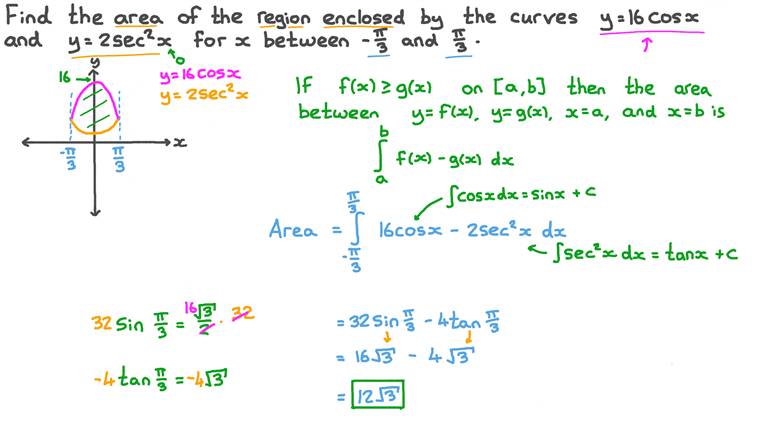 Find the area of the region enclosed by the curves y=16cosx
and y=2sec²x for x between -π/3 and π/3.
0
y
16
y=16cosx
y=2sec²x
x
-π/3 π/3
If f(x)≥g(x) on [a,b] then the area
between y=f(x), y=g(x), x=a, and x=b is
∫_a^b f(x)-g(x) dx
∫cosxdx=sinx+C
Area = ∫_{-π/3}^{π/3} 16cosx-2sec²x dx
∫sec²x dx=tanx+C
32sin π/3 = 16√3/2 · 32
=32sin π/3 - 4tan π/3
= 16√3 - 4√3
-4tan π/3 = -4√3
= 12√3